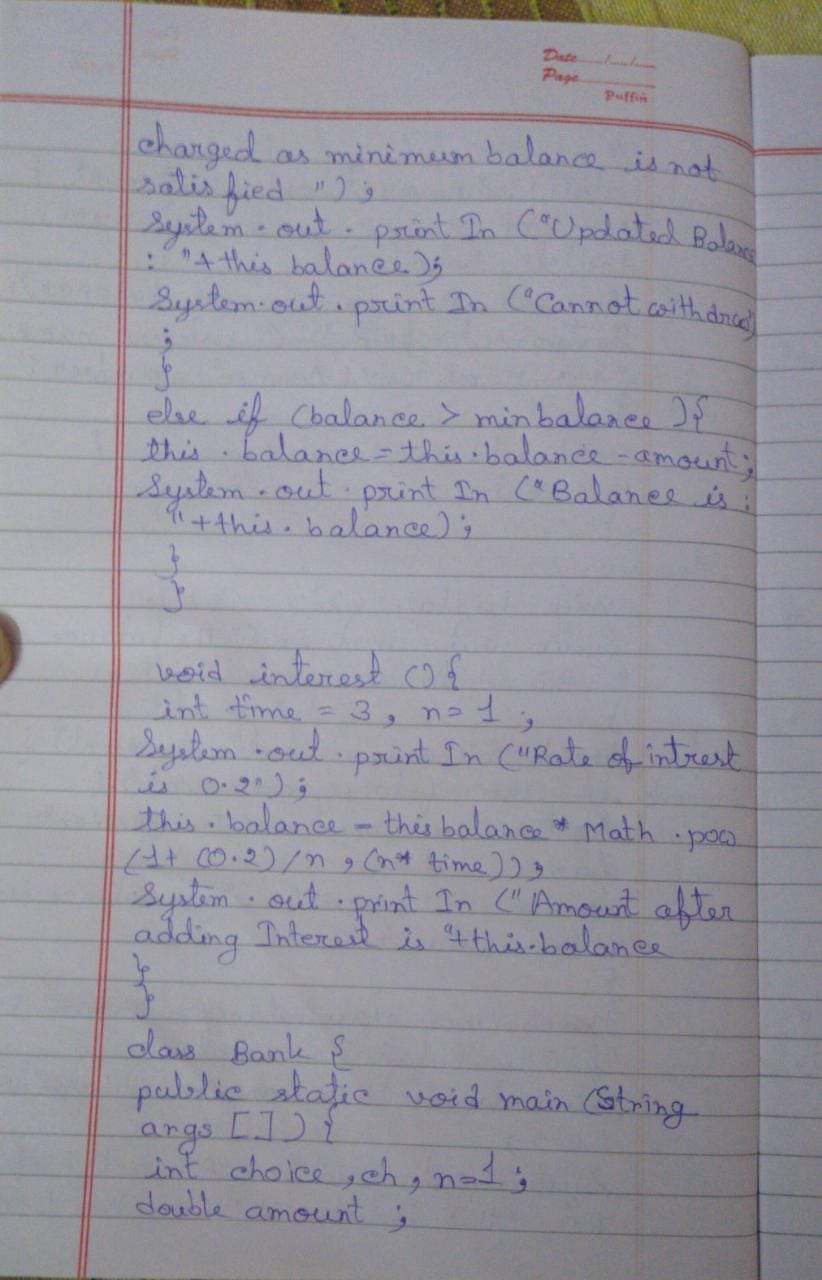 Date ...../...../.....
Page
Puffin
charged as minimum balance is not
satisfied ");
System.out.print In ("Updated Balance
: "+ this balance);
System.out.print In ("Cannot withdraw")
;
}
else if (balance > minbalance ){
this.balance = this.balance - amount;
System.out.print In ("Balance is :
"+this.balance);
}
}
void interest () {
int time = 3, n=1 ;
System.out.print In ("Rate of intrest
is 0.2");
this.balance = this balance * Math.pow
(1+ (0.2)/n , (n* time));
System.out.print In ("Amount after
adding Interest is "+this.balance
}
}
class Bank {
public static void main (String
args []) {
int choice, ch, n=1 ;
double amount ;